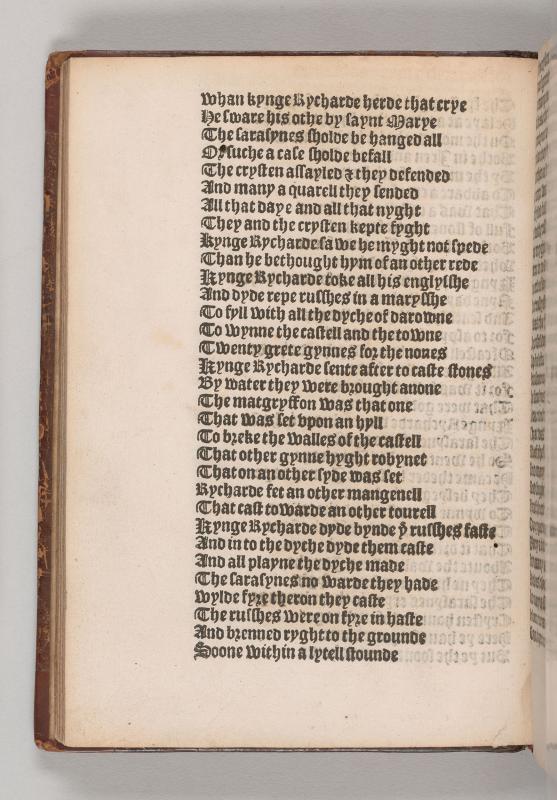 whan kynge Rycharde herde that crye
He sware his othe by saynt Marye
The sarasynes sholde be hanged all
Or suche a case sholde befall
The crysten assayled ⁊ they defended
And many a quarell they sended
All that daye and all that nyght
They and the crysten kepte fyght
Kynge Rycharde sawe he myght not spede
Than he bethought hym of an other rede
Kynge Rycharde toke all his englysshe
And dyde repe russhes in a marysshe
To fyll with all the dyche of darowne
To wynne the castell and the towne
Twenty grete gynnes for the nones
Kynge Rycharde sente after to caste stones
By water they were brought anone
The matgryffon was that one
That was set vpon an hyll
To breke the walles of the castell
That other gynne hyght robynet
That on an other syde was set
Rycharde set an other mangenell
That cast towarde an other tourell
Kynge Rycharde dyde bynde yͤ russhes faste
And in to the dyche dyde them caste
And all playne the dyche made
The sarasynes no warde they hade
wylde fyre theron they caste
The russhes were on fyre in haste
And brenned ryght to the grounde
Soone within a lytell stounde